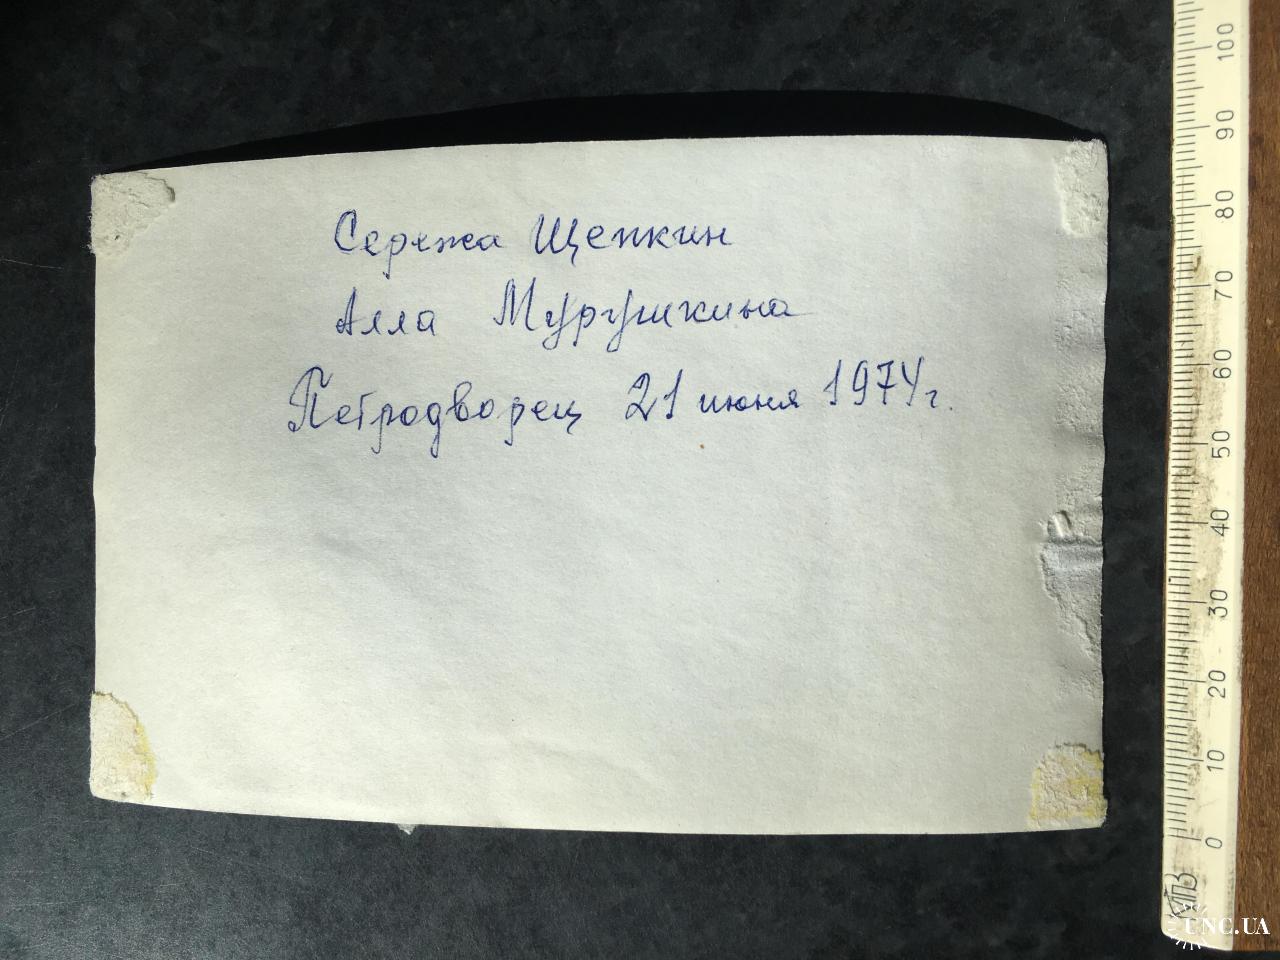 Сережа Щепкин
Алла Мурушкина
Петродворец 21 июня 1974г.
100
90
80
70
60
50
40
30
20
10
0
UNC.UA